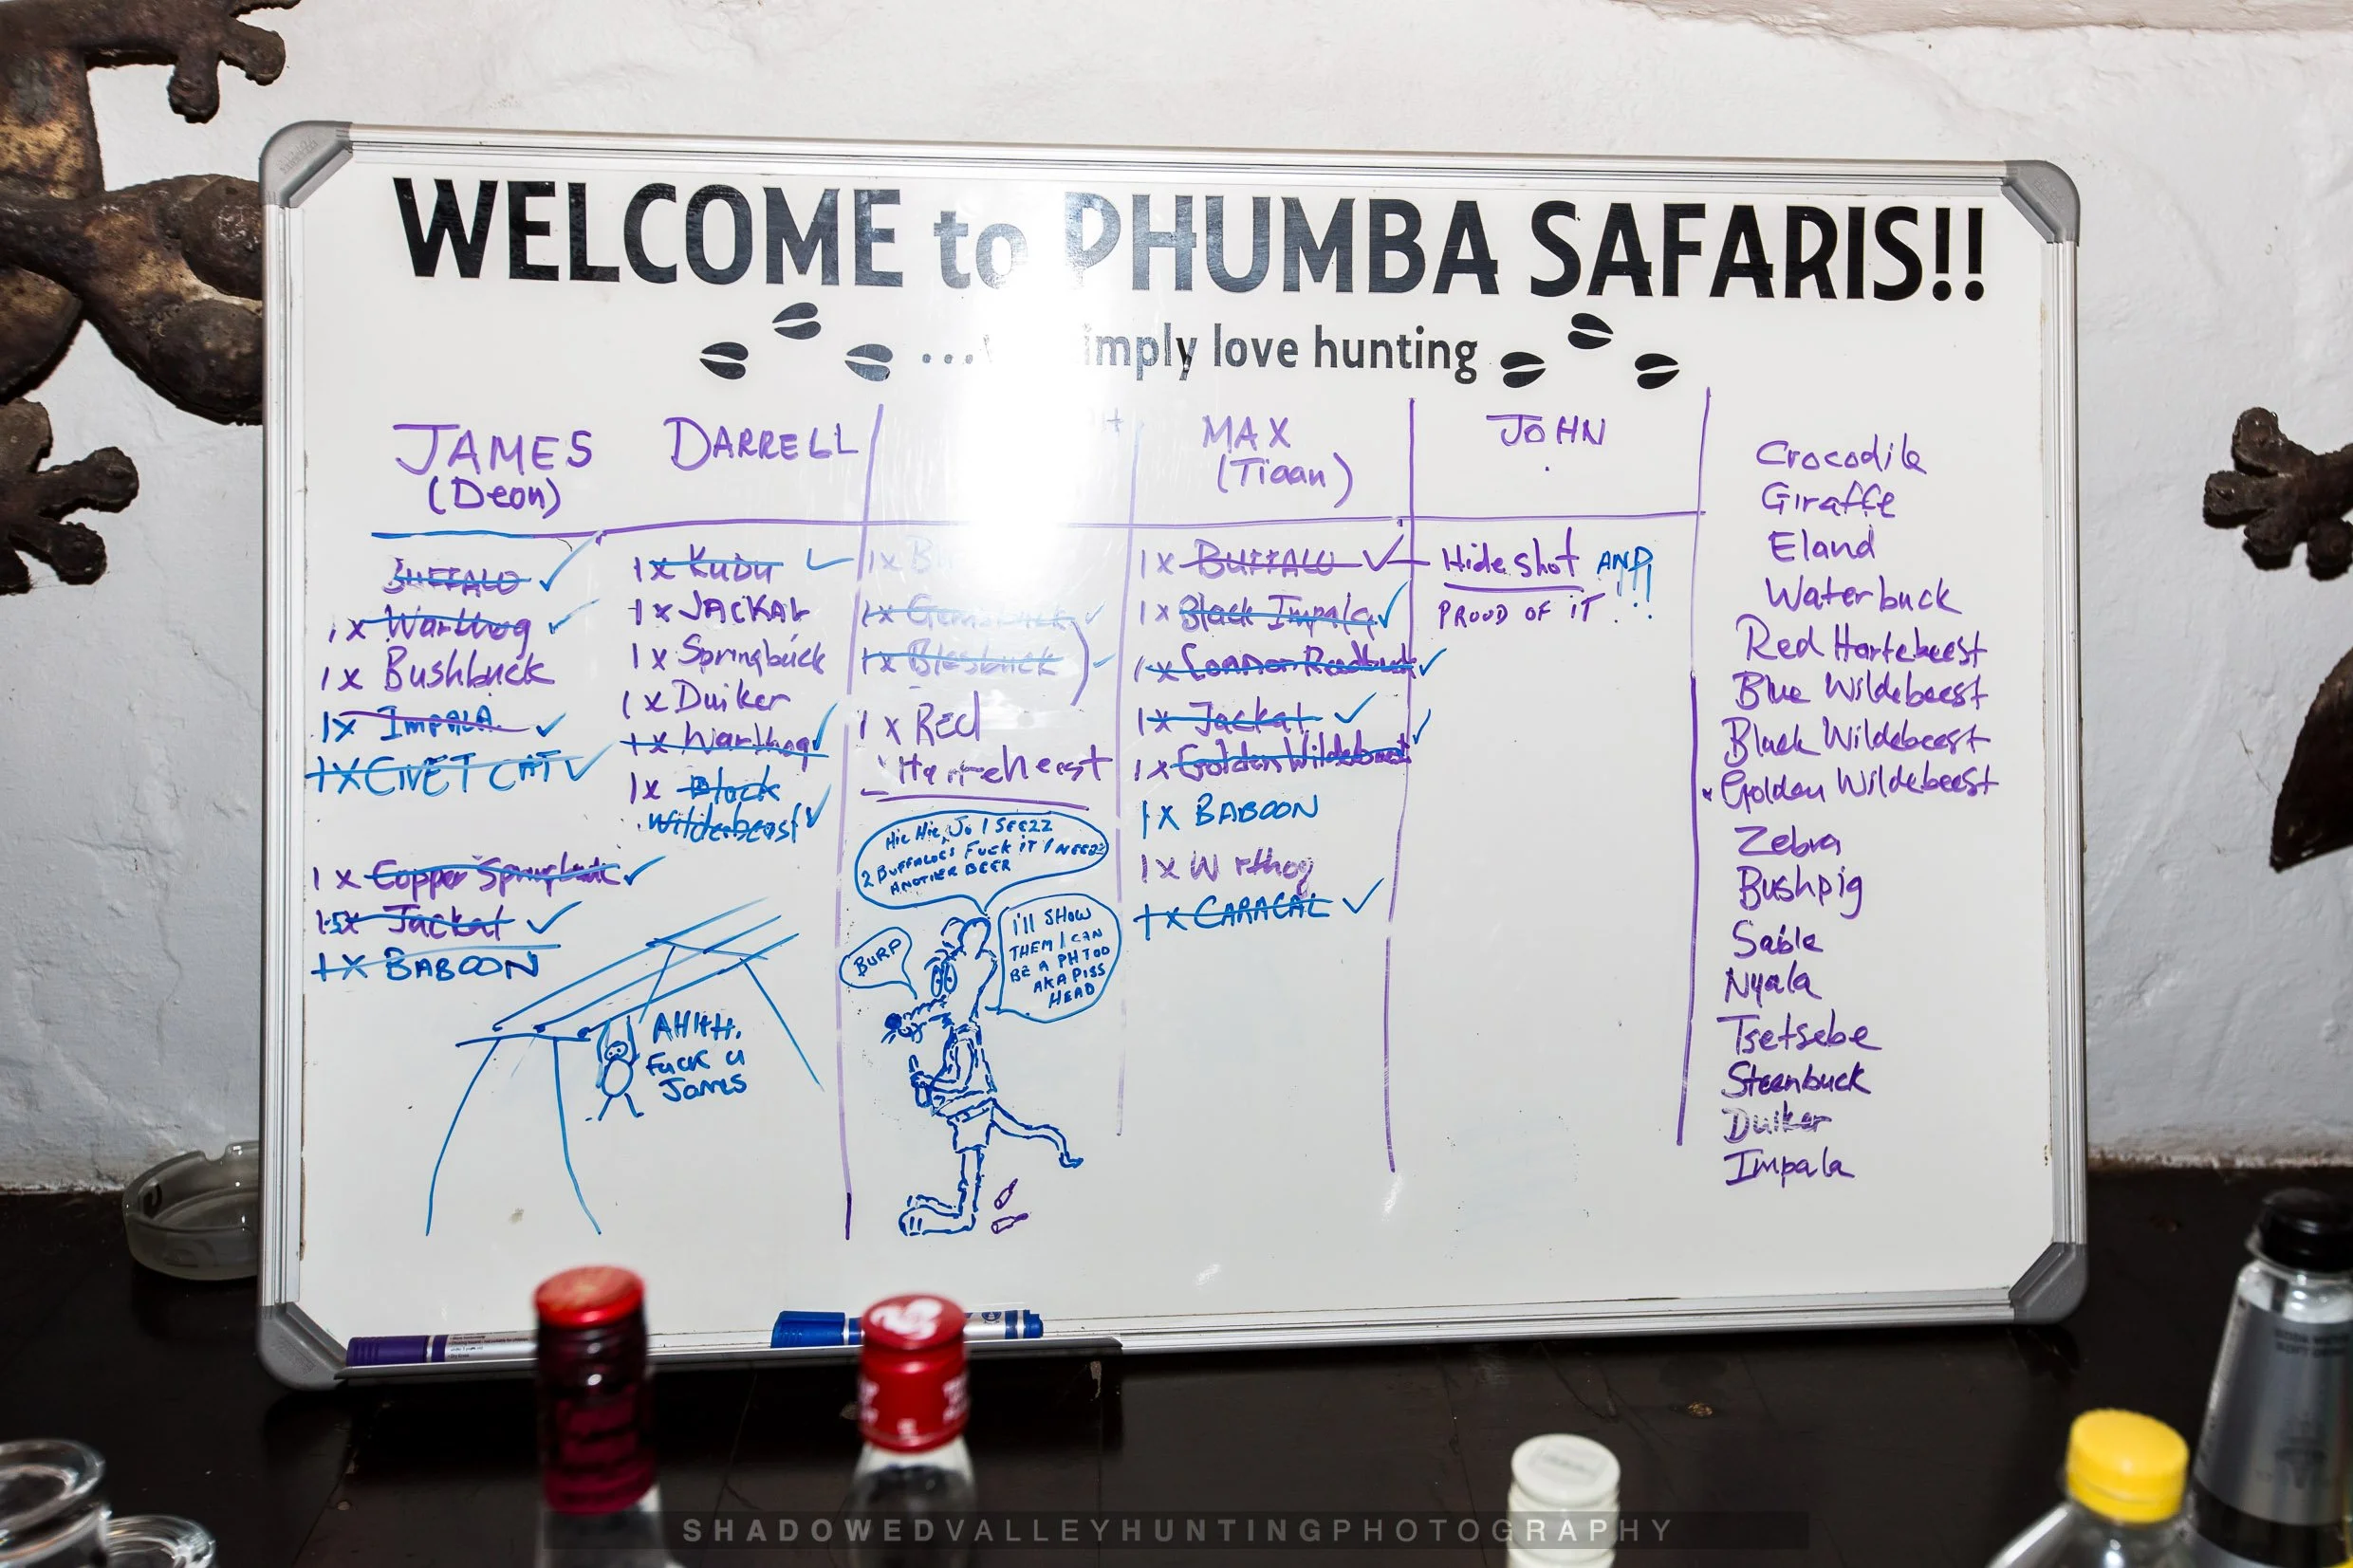 WELCOME to PHUMBA SAFARIS!!
imply love hunting
JAMES
(Deon)
BUFFALO
1x Warthog
1x Bushbuck
1x IMPALA
1x CIVET CAT
1x Copper Springbuck
Jackal
1x BABOON
AHHH.
Fuck u
James
DARRELL
1x KUDU
1x JACKAL
1x Springbuck
1x Duiker
1x Warthog
1x Black
Wildebeest
1x
1x Gemsbuck
1x Blesbuck
1x Red
Hartebeest
Hic Hic, Jo I SEEZZ
2 BUFFALOES FUCK IT I NEEZZ
ANOTHER BEER
BURP
I'll SHOW
THEM I CAN
BE A PH TOO
AKA PISS
HEAD
MAX
(Tiaan)
1x BUFFALO
1x Black Impala
1x Common Reedbuck
1x Jackal
1x Golden Wildebeest
1x BABOON
1x W rthog
1x CARACAL
JOHN
Hide shot AND!!!
PROUD OF IT
Crocodile
Giraffe
Eland
Waterbuck
Red Hartebeest
Blue Wildebeest
Black Wildebeest
Golden Wildebeest
Zebra
Bushpig
Sable
Nyala
Tsetsebe
Steenbuck
Duiker
Impala
SHADOWEDVALLEYHUNTINGPHOTOGRAPHY